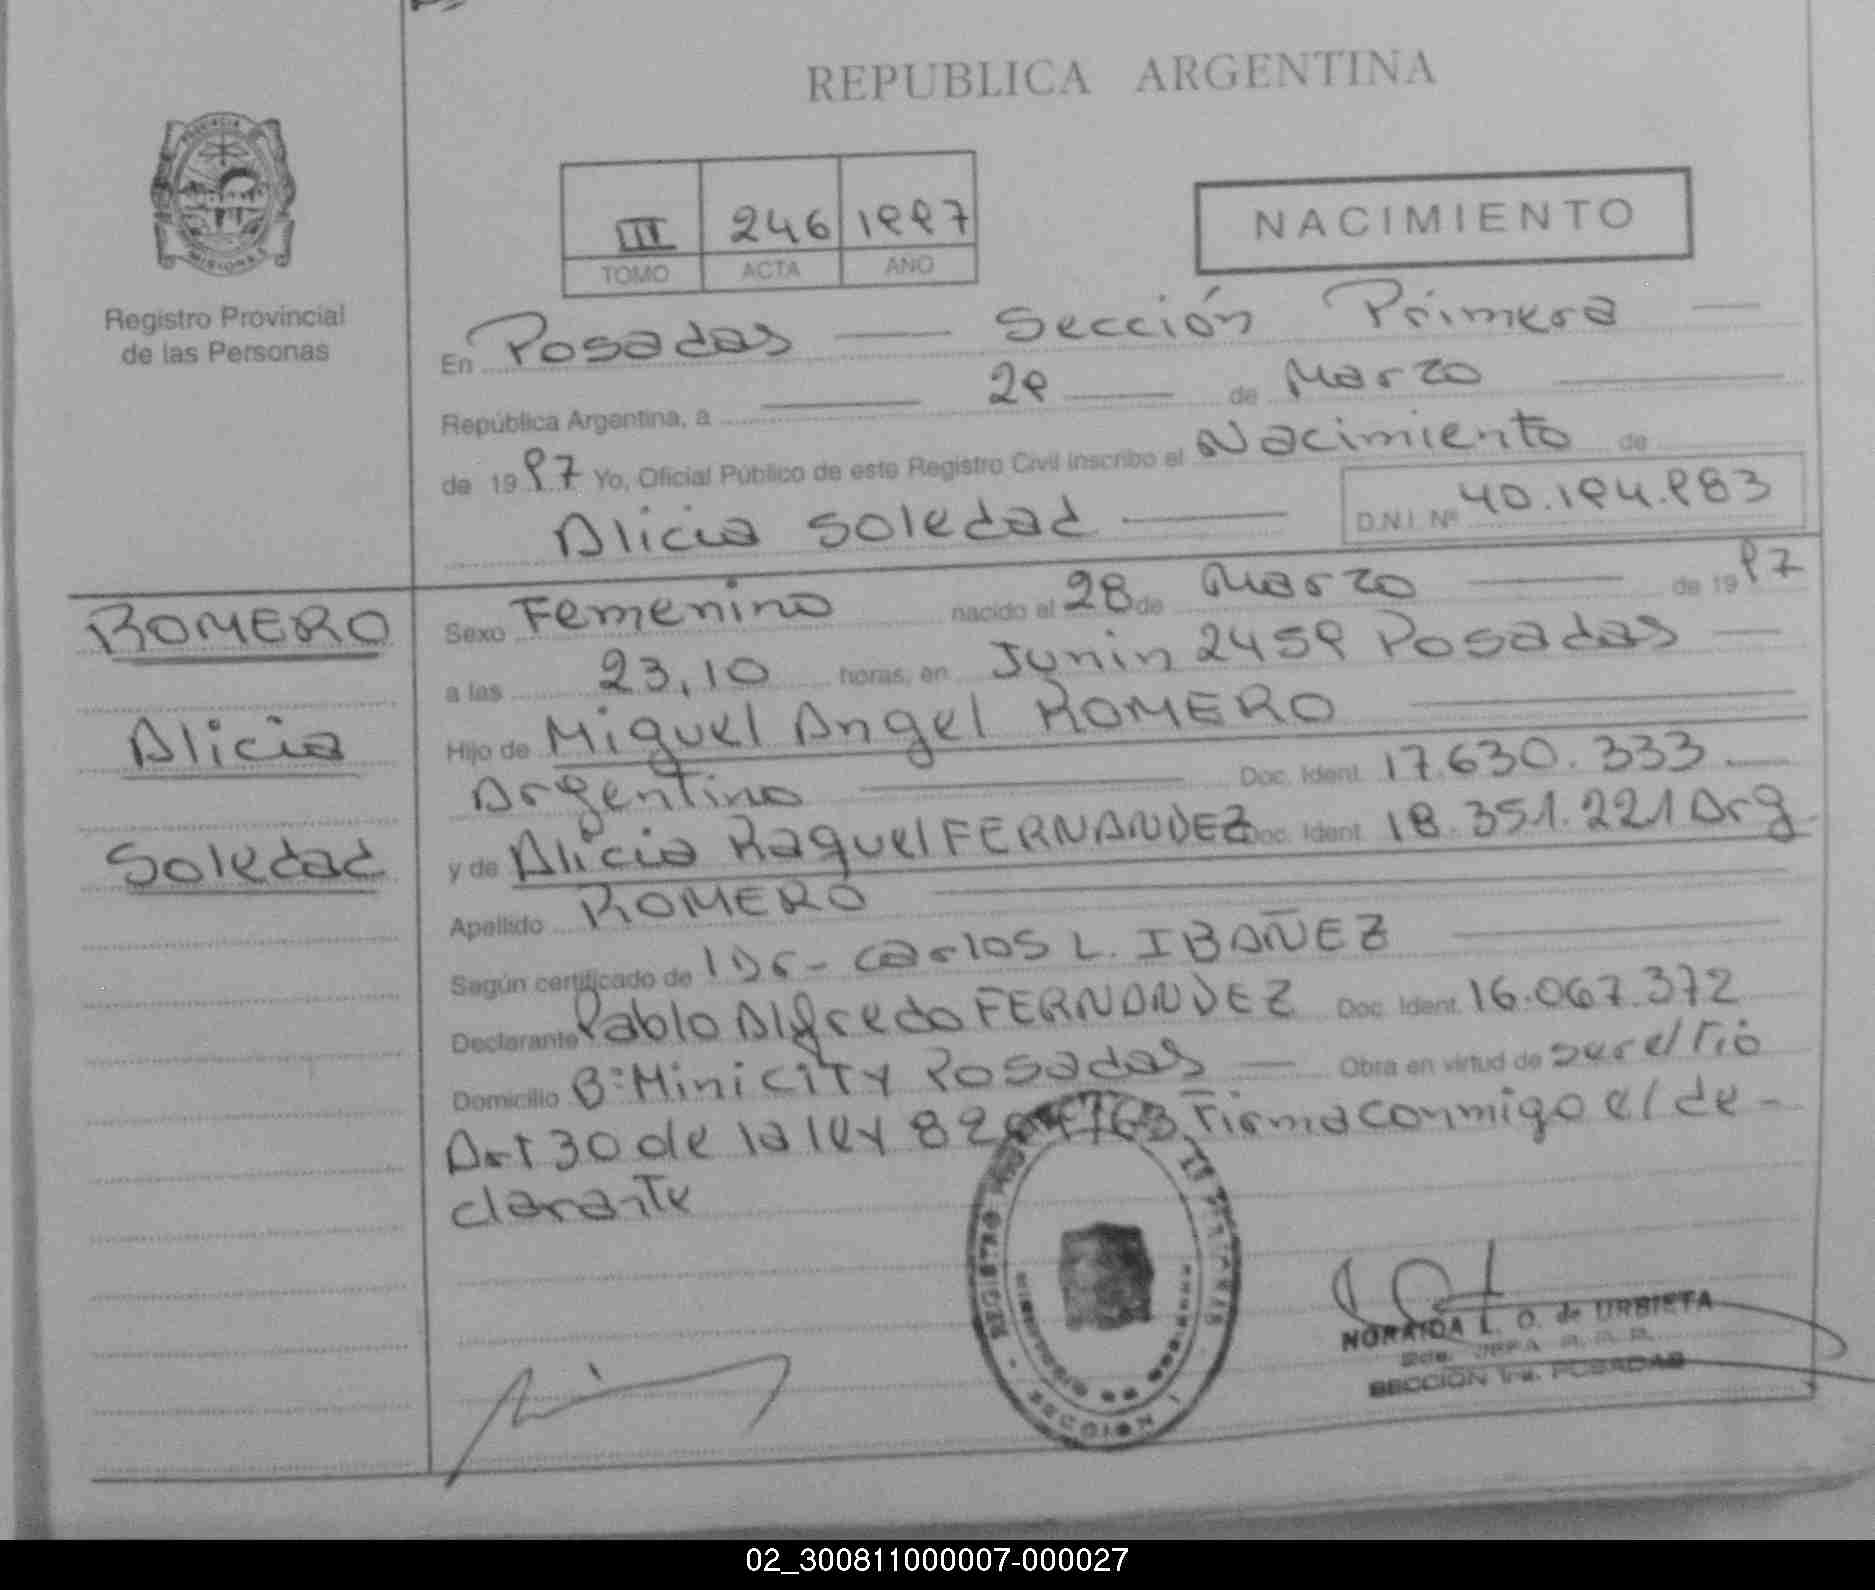 REPUBLICA ARGENTINA
PROVINCIA
MISIONES
Registro Provincial
de las Personas
III 246 1997
TOMO ACTA AÑO
NACIMIENTO
En Posadas — Sección Primera —
República Argentina, a — 29 — de Marzo —
de 1997 Yo, Oficial Público de este Registro Civil inscribo el Nacimiento de
Alicia Soledad — D.N.I. Nº 40.194.983
ROMERO
Alicia
Soledad
Sexo Femenino nacido el 28 de Marzo — de 1997
a las 23,10 horas, en Junin 2459 Posadas —
Hijo de Miguel Angel ROMERO —
Argentino — Doc. Ident. 17.630.333 —
y de Alicia Raquel FERNANDEZ Doc. Ident. 18.351.221 Arg
Apellido ROMERO —
Según certificado de Dr- Carlos L. IBAÑEZ —
Declarante Pablo Alfredo FERNANDEZ Doc. Ident. 16.067.372
Domicilio Bº Minicity Posadas — Obra en virtud de ser el Tio
Art 30 de la ley 8204763 Firma conmigo el de-
clarante
NORAIDA L. O. de URBIETA
SECCION 1ra. POSADAS
02_300811000007-000027